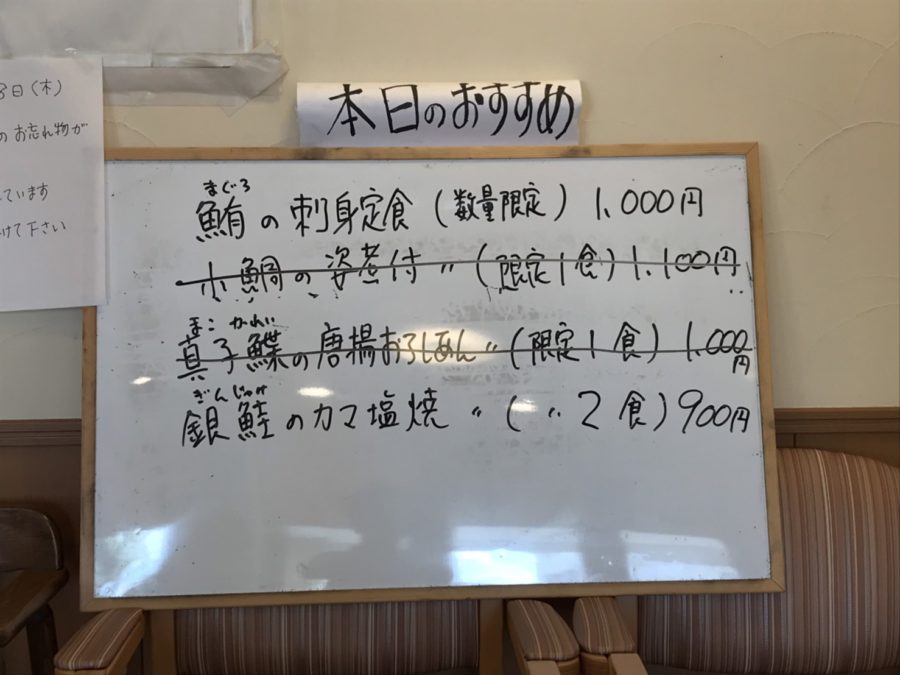 8日(木)
の お忘れ物が
ています
けて下さい
本日のおすすめ
まぐろ
鮪の刺身定食(数量限定)1,000円
小鯛の姿煮付〃(限定1食)1,100円
まこ かれい
真子鰈の唐揚おろしあん〃(限定1食)1,000円
ぎんじゃけ
銀鮭のカマ塩焼〃(〃2食)900円